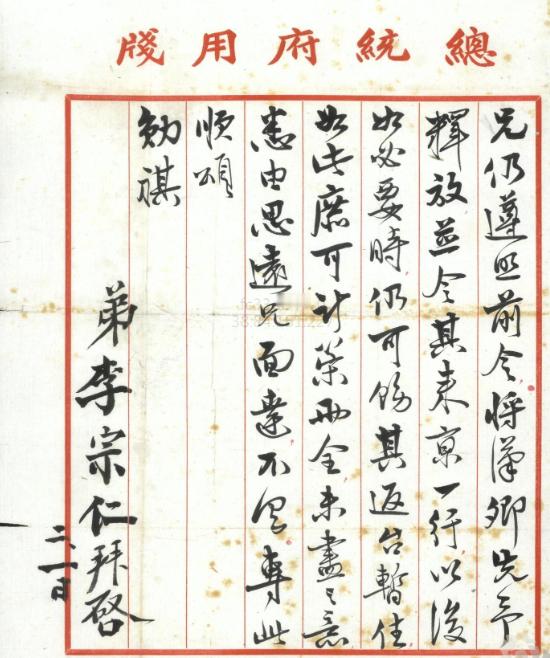 總統府用牋
兄仍遵照前令將漢卿先予
釋放並令其來京一行以後
如必要時仍可飭其返台暫住
如此庶可計策兩全未盡之意
悉由思遠兄面達不具專此
順頌
勛祺
弟李宗仁拜啓
二、一日